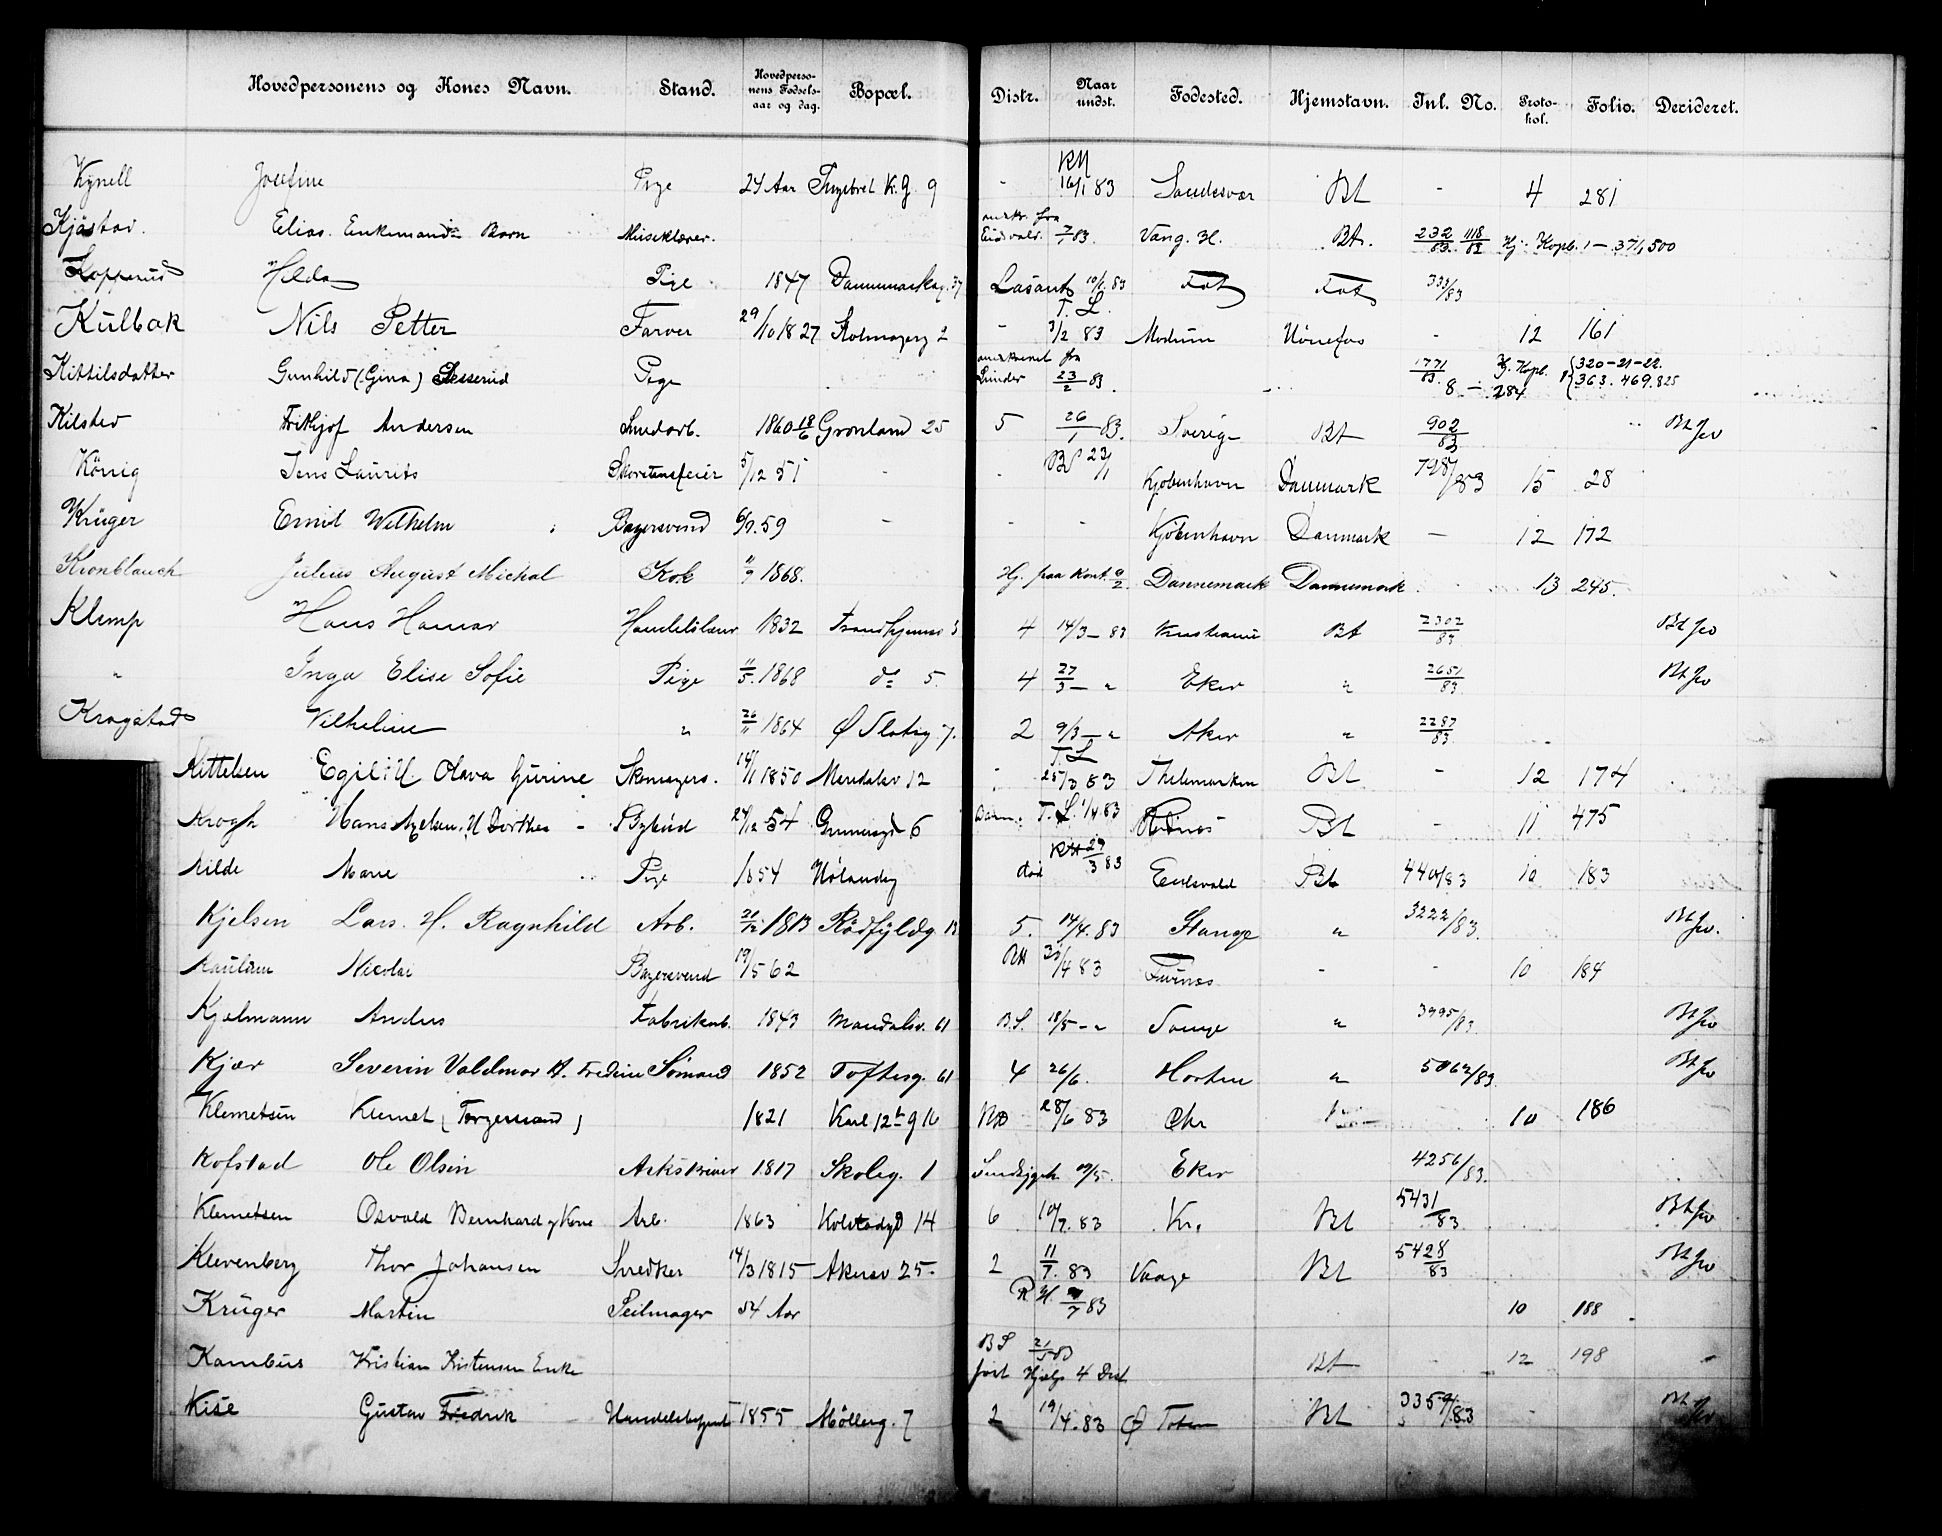 Hovedpersonens og Kones Navn. Stand. Hovedpersonens Fødselsaar og dag. Bopæl. Distr. Naar undst. Fødested. Hjemstavn. Jnl. No. Protokol. Folio. Decideret.
Kynell Josefine Pige 24 Aar Ingebret K. G. 9 - RH 16/1 83 Sandesvær Bt - 4 281
Kjöstad. Elias. Enkemands Børn Musiklærer. Eidsvold. 7/1 83. Vang. H. Bt. 232/83. 1118/83 Hj. Kopb. 1 - 371, 500
Kopperud Hilda Pige 1847 Danmarksg. 37 Lasaret 10/1 83 Fet Fet 333/83
Kulbak Nils Petter Farver 29/10 1827 Skomagerg 2 - T. L. 3/2 83 Modum Hönefos - 12 161
Kittilsdatter Gunhild (Gina) Pige fra 23/2 83. 1771/83. Hj. Kopb. 320-21-22. 363. 469. 825 8 - 284
Kilsted Frithjof Andersen Smedarb. 1860 18/6 Grönland 25 5 26/1 83. Sverige Bt 902/83 Bt Jo
König Jens Laurits Skorstensfeier 5/12 51 - - 23/1 Kjøbenhavn Danmark 798/83 15 28
Krüger Emil Wilhelm Bagersvend 6/9. 59 - - - Kjöbenhavn Danmark - 12 172
Kronblauch Julius August Michal Kok 11/9 1868. Hj. paa Kont. 9/2. Dannemark Dannemark 13 245.
Klemp Hans Hamar 1832 Trondhjemsv 5 4 14/3 - 83 Kristiania Bt 2302/83 Bt Jo
" Inga Elise Sofie Pige 11/5. 1868 do 5. 4 27/3 - " Eker " 2651/83 Bt Jo
Krogstad Vilhelmine " 26/11 1864 Ø Slotsg 7. 2 9/3 - " Aker " 2287/83
Kittelsen Egil: H. Olava Gurine Skomagers. 14/11 1850 Maridalsv 12 T. L. 25/3 83 Thelemarken Bt - 12 174
Krogh Hans Axelsen, H Dorthea - Bybud 24/12 54 Grunersgd 6 T. L. 1/4 83 Bt - 11 475
Kilde Marie Pige 1854 död RH 29/3 83 Eidsvold Bt 440/83 10 183
Kjelsen Lars. H. Ragnhild Arb. 21/12 1813 Rödfyldg. 13 5. 14/4. 83 Stange " 3222/83. Bt Jo.
Nicolai Bagersvend 19/5 62 RH 30/4 83 Furnes - - 10 184
Kjelmann Anders Fabrikarb. 1843 Maridalsv. 61 B. S. 18/5 - " " 3995/83 Bt Jo
Kjær Severin Valdemar H. Fredrine Sömand 1852 Toftesg. 61 4 26/6. Horten " 5062/83 Bt Jo
Klemetsen Klemet (Torgersrand) 1821 Karl 12te g 16 RH 28/6 83 Chr 10 186
Kofstad Ole Olsen Aktskriver 1817 Skoleg. 1 Sindsygeh. 19/5. Eker 4256/83.
Klemetsen Osvald Bernhard og Kone Arb. 1863 Kolstadgd 14 6 10/7. 83 Kr. Bt 5431/83 Bt Jo
Klevenberg Thor Johansen Skredder 14/3 1815 Akersv 25. 2 11/7. 83 Vaage Bt 5428/83 Bt Jo
Krüger Martin Seilmager 54 Aar R H. 9/7 83 10 188
Kambus Kristian Kristensen Enke BS 21/5 83 fast Hjælp 4 Dist Bt 12 198
Kise Gustav Fredrik Handelsbetjent 1855 Mölleg. 7 2 19/4. 83 Ø Toten Bt 3359/83 Bt Jo